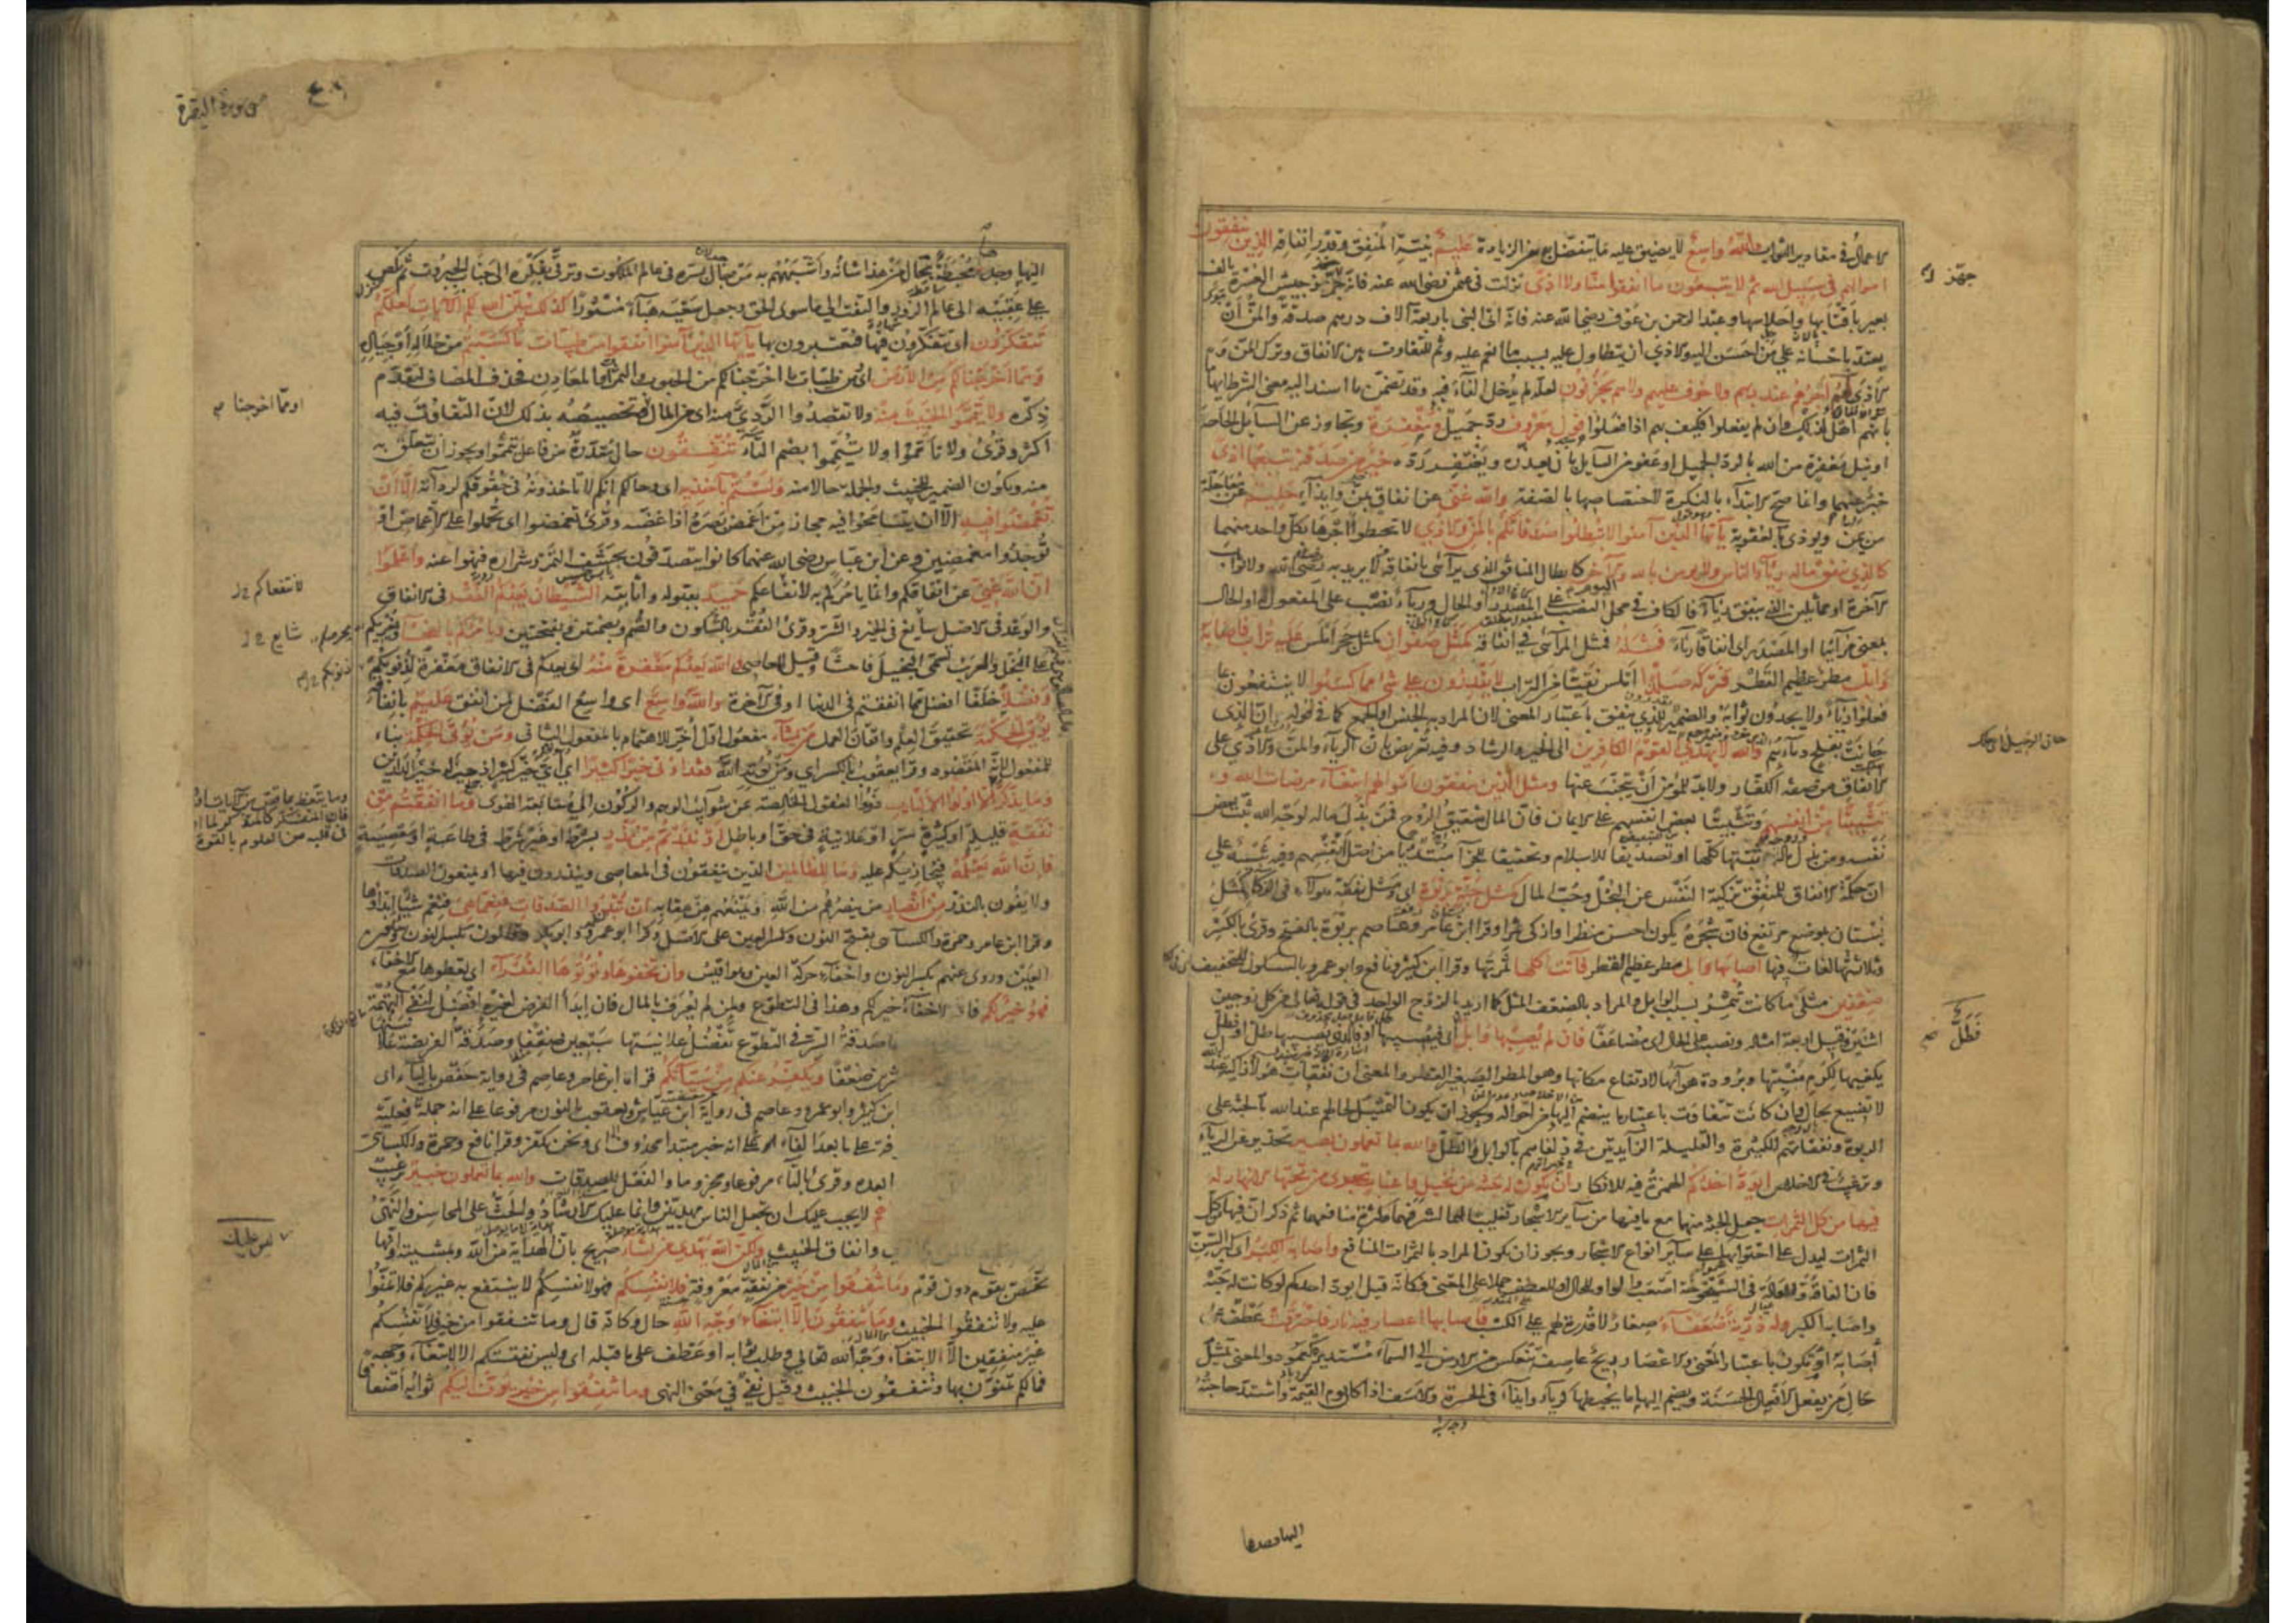 الاعمال في مقادير الثواب والله واسع لا يضيق عليه ما يتفضل به من الزيادة عليم بنية المنفق وقدر انفاقه الذين ينفقون
اموالهم في سبيل الله ثم لا يتبعون ما انفقوا منا ولا اذى نزلت في عثمن رضي الله عنه فانه جهز جيش العسرة بالف
بعير باقتابها واحلاسها وعبد الرحمن بن عوف رضي الله عنه فانه اتى النبي باربعة آلاف درهم صدقة والمن ان
يعتد باحسانه على من احسن اليه والاذى ان يتطاول عليه بسبب ما انعم عليه وثم للتفاوت بين الانفاق وترك المن و
الاذى لهم اجرهم عند ربهم ولا خوف عليهم ولا هم يحزنون لعله لم يدخل الفاء فيه وقد تضمن ما اسند اليه معنى الشرط ايهاما
بانهم اهل لذلك وان لم يفعلوا فكيف بهم اذا فعلوا قول معروف رد جميل ومغفرة وتجاوز عن السائل الحاحه
او نيل مغفرة من الله بالرد الجميل او عفو من السايل بان يعذر ويغتفر رده خير من صدقة يتبعها اذى
خبر عنهما وانما صح الابتداء بالنكرة لاختصاصها بالصفة والله غني عن انفاق بمن وايذاء حليم عن معاجلة
من يمن ويوذي بالعقوبة يا ايها الذين آمنوا لا تبطلوا صدقاتكم بالمن والاذى لا تحبطوا اجرها بكل واحد منهما
كالذي ينفق ماله رئاء الناس ولا يومن بالله واليوم الاخر كابطال المنافق الذي يرائي بانفاقه لا يريد به رضى الله ولا ثواب
الآخرة او مماثلين الذي ينفق رئاء فالكاف في محل النصب على المصدر او الحال ورئاء نصب على المفعول له او الحال
بمعنى مرائيا او المصدر اى انفاقا رئاء فمثله فمثل المرائي في انفاقه كمثل صفوان كمثل حجر املس عليه تراب فاصابه
وابل مطر عظيم القطر فتركه صلدا املس نقيا من التراب لا يقدرون على شئ مما كسبوا لا ينتفعون بما
فعلوا رئاء ولا يجدون ثوابه والضمير للذي ينفق باعتبار المعنى لان المراد به الجنس او الجمع كما في قوله ان الذي
حانت بفلج دماؤهم والله لا يهدي القوم الكافرين الى الخير والرشاد وفيه تعريض بان الرياء والمن والاذى على
الانفاق من صفة الكفار ولا بد للمومن ان يتجنب عنها ومثل الذين ينفقون اموالهم ابتغاء مرضات الله و
تثبيتا من انفسهم وتثبيتا بعض انفسهم على الايمان فان المال شقيق الروح فمن بذل ماله لوجه الله ثبت بعض
نفسه ومن بذل ماله وروحه ثبتها كلها او تصديقا للاسلام وتحقيقا للجزاء مبتدئا من اصل انفسهم وفيه تنبيه على
ان حكمة الانفاق للمنفق تزكية النفس عن البخل وحب المال كمثل جنة بربوة اى ومثل نفقة هؤلاء في الزكاء كمثل
بستان بموضع مرتفع فان شجره يكون احسن منظرا وازكى ثمرا وقرا ابن عامر وعاصم بربوة بالفتح وقرئ بالكسر
وثلاثتها لغات فيها اصابها وابل مطر عظيم القطر فآتت اكلها ثمرتها وقرا ابن كثير ونافع وابو عمرو بالسكون للتخفيف
ضعفين مثلى ما كانت تثمر بسبب الوابل والمراد بالضعف المثل كما اريد بالزوج الواحد في قوله تعالى من كل زوجين
اثنين وقيل اربعة امثاله ونصبه على الحال اى مضاعفا فان لم يصبها وابل فطل اى فيصيبها او فالذي يصيبها طل او فطل
يكفيها لكرم منبتها وبرودة هوآئها لارتفاع مكانها وهو المطر الصغير القطر والمعنى ان نفقات هولاء زاكية عند الله
لا تضيع بحال وان كانت تتفاوت باعتبار ما ينضم اليها من احواله ويجوز ان يكون التمثيل لحالهم عند الله بالجنة على
الربوة ونفقاتهم الكثيرة والقليلة الزايدتين في زلفاهم بالوابل والطل والله بما تعملون بصير تحذير عن الرياء
وترغيب في الاخلاص ايود احدكم الهمزة فيه للانكار ان تكون له جنة من نخيل واعناب تجري من تحتها الانهار له
فيها من كل الثمرات جعل الجنة منهما مع ما فيها من سائر الاشجار تغليبا لهما لشرفهما وكثرة منافعهما ثم ذكر ان فيها كل
الثمرات ليدل على احتوائها على سآئر انواع الاشجار ويجوز ان يكون المراد بالثمرات المنافع واصابه الكبر اى كبر السن
فان الفاقة والعالة في الشيخوخة اصعب والواو للحال او للعطف حملا على المعنى فكانه قيل ايود احدكم لو كانت له جنة
واصابه الكبر وله ذرية ضعفاء صغار لا قدرة لهم على الكسب فاصابها اعصار فيه نار فاحترقت عطف على
اصابه او تكون باعتبار المعنى والاعصار ريح عاصفة تنعكس من الارض الى السمآء مستديرة كعمود والمعنى تمثيل
حال من يفعل الافعال الحسنة ويضم اليها ما يحبطها كرياء وايذاء في الحسرة والاسف اذا كان يوم القيمة واشتد حاجته
اليها وجدها
جهز
فطل صح
سورة البقرة
اليها وجدها محبطة بحال من هذا شانه واشبههم به من جال بسره في عالم الملكوت وترقى بفكره الى جناب الجبروت ثم نكص
على عقبيه الى عالم الزور والتفت الى ما سوى الحق وجعل سعيه هباء منثورا كذلك يبين الله لكم الايات لعلكم
تتفكرون اى تتفكرون فيها فتعتبرون بها يا ايها الذين آمنوا انفقوا من طيبات ما كسبتم من حلاله او جياده
ومما اخرجنا لكم من الارض اى من طيبات ما اخرجنا لكم من الحبوب والثمرات والمعادن فحذف المضاف لتقدم
ذكره ولا تيمموا الخبيث منه ولا تقصدوا الردي منه اى من المال وتخصيصه بذلك لان التفاوت فيه
اكثر وقرئ ولا تامموا ولا تيمموا بضم التآء تنفقون حال مقدرة من فاعل تيمموا ويجوز ان يتعلق به
منه ويكون الضمير للخبيث والجملة حالا منه ولستم بآخذيه اى وحالكم انكم لا تاخذونه في حقوقكم لردآئته الا ان
تغمضوا فيه الا ان يتسامحوا فيه مجاز من اغمض بصره اذا غضه وقرئ تغمضوا اى تحملوا على الاغماض او
توجدوا مغمضين وعن ابن عباس رضي الله عنهما كانوا يتصدقون بحشف التمر وشراره فنهوا عنه واعلموا
ان الله غني عن انفاقكم وانما يامركم به لانتفاعكم حميد بقبوله واثابته الشيطان يعدكم الفقر في الانفاق
والوعد في الاصل شايع في الخير والشر وقرئ الفقر بالسكون والضم وبضمتين وبفتحتين ويامركم بالفحشاء ويغريكم
على البخل والعرب تسمى البخيل فاحشا وقيل المعاصي والله يعدكم مغفرة منه اى يعدكم في الانفاق مغفرة لذنوبكم
وفضلا خلفا افضل مما انفقتم في الدنيا او في الآخرة والله واسع اى واسع الفضل لمن انفق عليم بانفاقه
يؤتي الحكمة تحقيق العلم واتقان العمل من يشآء مفعول اول اخر للاهتمام بالمفعول الثاني ومن يؤت الحكمة بناء
للمفعول لانه المقصود وقرا يعقوب بالكسر اى ومن يؤته الله فقد اوتي خيرا كثيرا اى اى خير كثير اذ حيز له خير الدارين
وما يذكر الا اولوا الالباب ذووا العقول الخالصة عن شوآئب الوهم والركون الى متابعة الهوى وما انفقتم من
نفقة قليلة او كثيرة سر او علانية في حق او باطل او نذرتم من نذر بشرط او غير شرط في طاعة او معصية
فان الله يعلمه فيجازيكم عليه وما للظالمين الذين ينفقون في المعاصي وينذرون فيها او يمنعون الصدقات
ولا يفون بالنذر من انصار من ينصرهم من الله ويمنعهم من عقابه ان تبدوا الصدقات فنعما هي فنعم شيئا ابداؤها
وقرا ابن عامر وحمزة والكسآئي بفتح النون وكسر العين على الاصل وقرا ابو عمرو وابو بكر وقالون بكسر النون وسكون
العين وروى عنهم بكسر النون واخفآء حركة العين وهو اقيس وان تخفوها وتؤتوها الفقرآء اى تعطوها مع الاخفاء
فهو خير لكم فالاخفآء خير لكم وهذا في التطوع ولمن لم يعرف بالمال فان ابدآء الفرض لغيره افضل لنفي التهمة
صدقة السر في التطوع تفضل علانيتها سبعين ضعفا وصدقة الفريضة علا
ضعفا ويكفر عنكم من سيئآتكم قراه ابن عامر وعاصم في رواية حفص باليآء اى
ابن كثير وابو عمرو وعاصم في رواية ابن عياش ويعقوب بالنون مرفوعا على انه جملة فعلية
على ما بعد الفآء او على انه خبر مبتدا محذوف اى ونحن نكفر وقرا نافع وحمزة والكسائي
وقرئ بالتآء مرفوعا ومجزوما والفعل للصدقات والله بما تعملون خبير ترغيب
لا يجب عليك ان تجعل الناس مهديين وانما عليك الارشاد والحث على المحاسن والنهي
وانفاق الخبيث ولكن الله يهدي من يشاء صريح بان الهداية من الله وبمشيته وانها
تختص بقوم دون قوم وما تنفقوا من خير من نفقة معروفة فلانفسكم فهو لانفسكم لا ينتفع به غيركم فلا تمنوا
عليه ولا تنفقوا الخبيث وما تنفقون الا ابتغآء وجه الله حال وكانه قال وما تنفقوا من خير فلانفسكم
غير منفقين الا لابتغآء وجه الله تعالى وطلب ثوابه او عطف على ما قبله اى وليس نفقتكم الا لابتغآء وجهه
فما لكم تمنون بها وتنفقون الخبيث وقيل نفي في معنى النهي وما تنفقوا من خير يوف اليكم ثوابه اضعافا
او مما اخرجنا صح
لانتفاعكم
شايع
لذنوبكم
ليس عليك